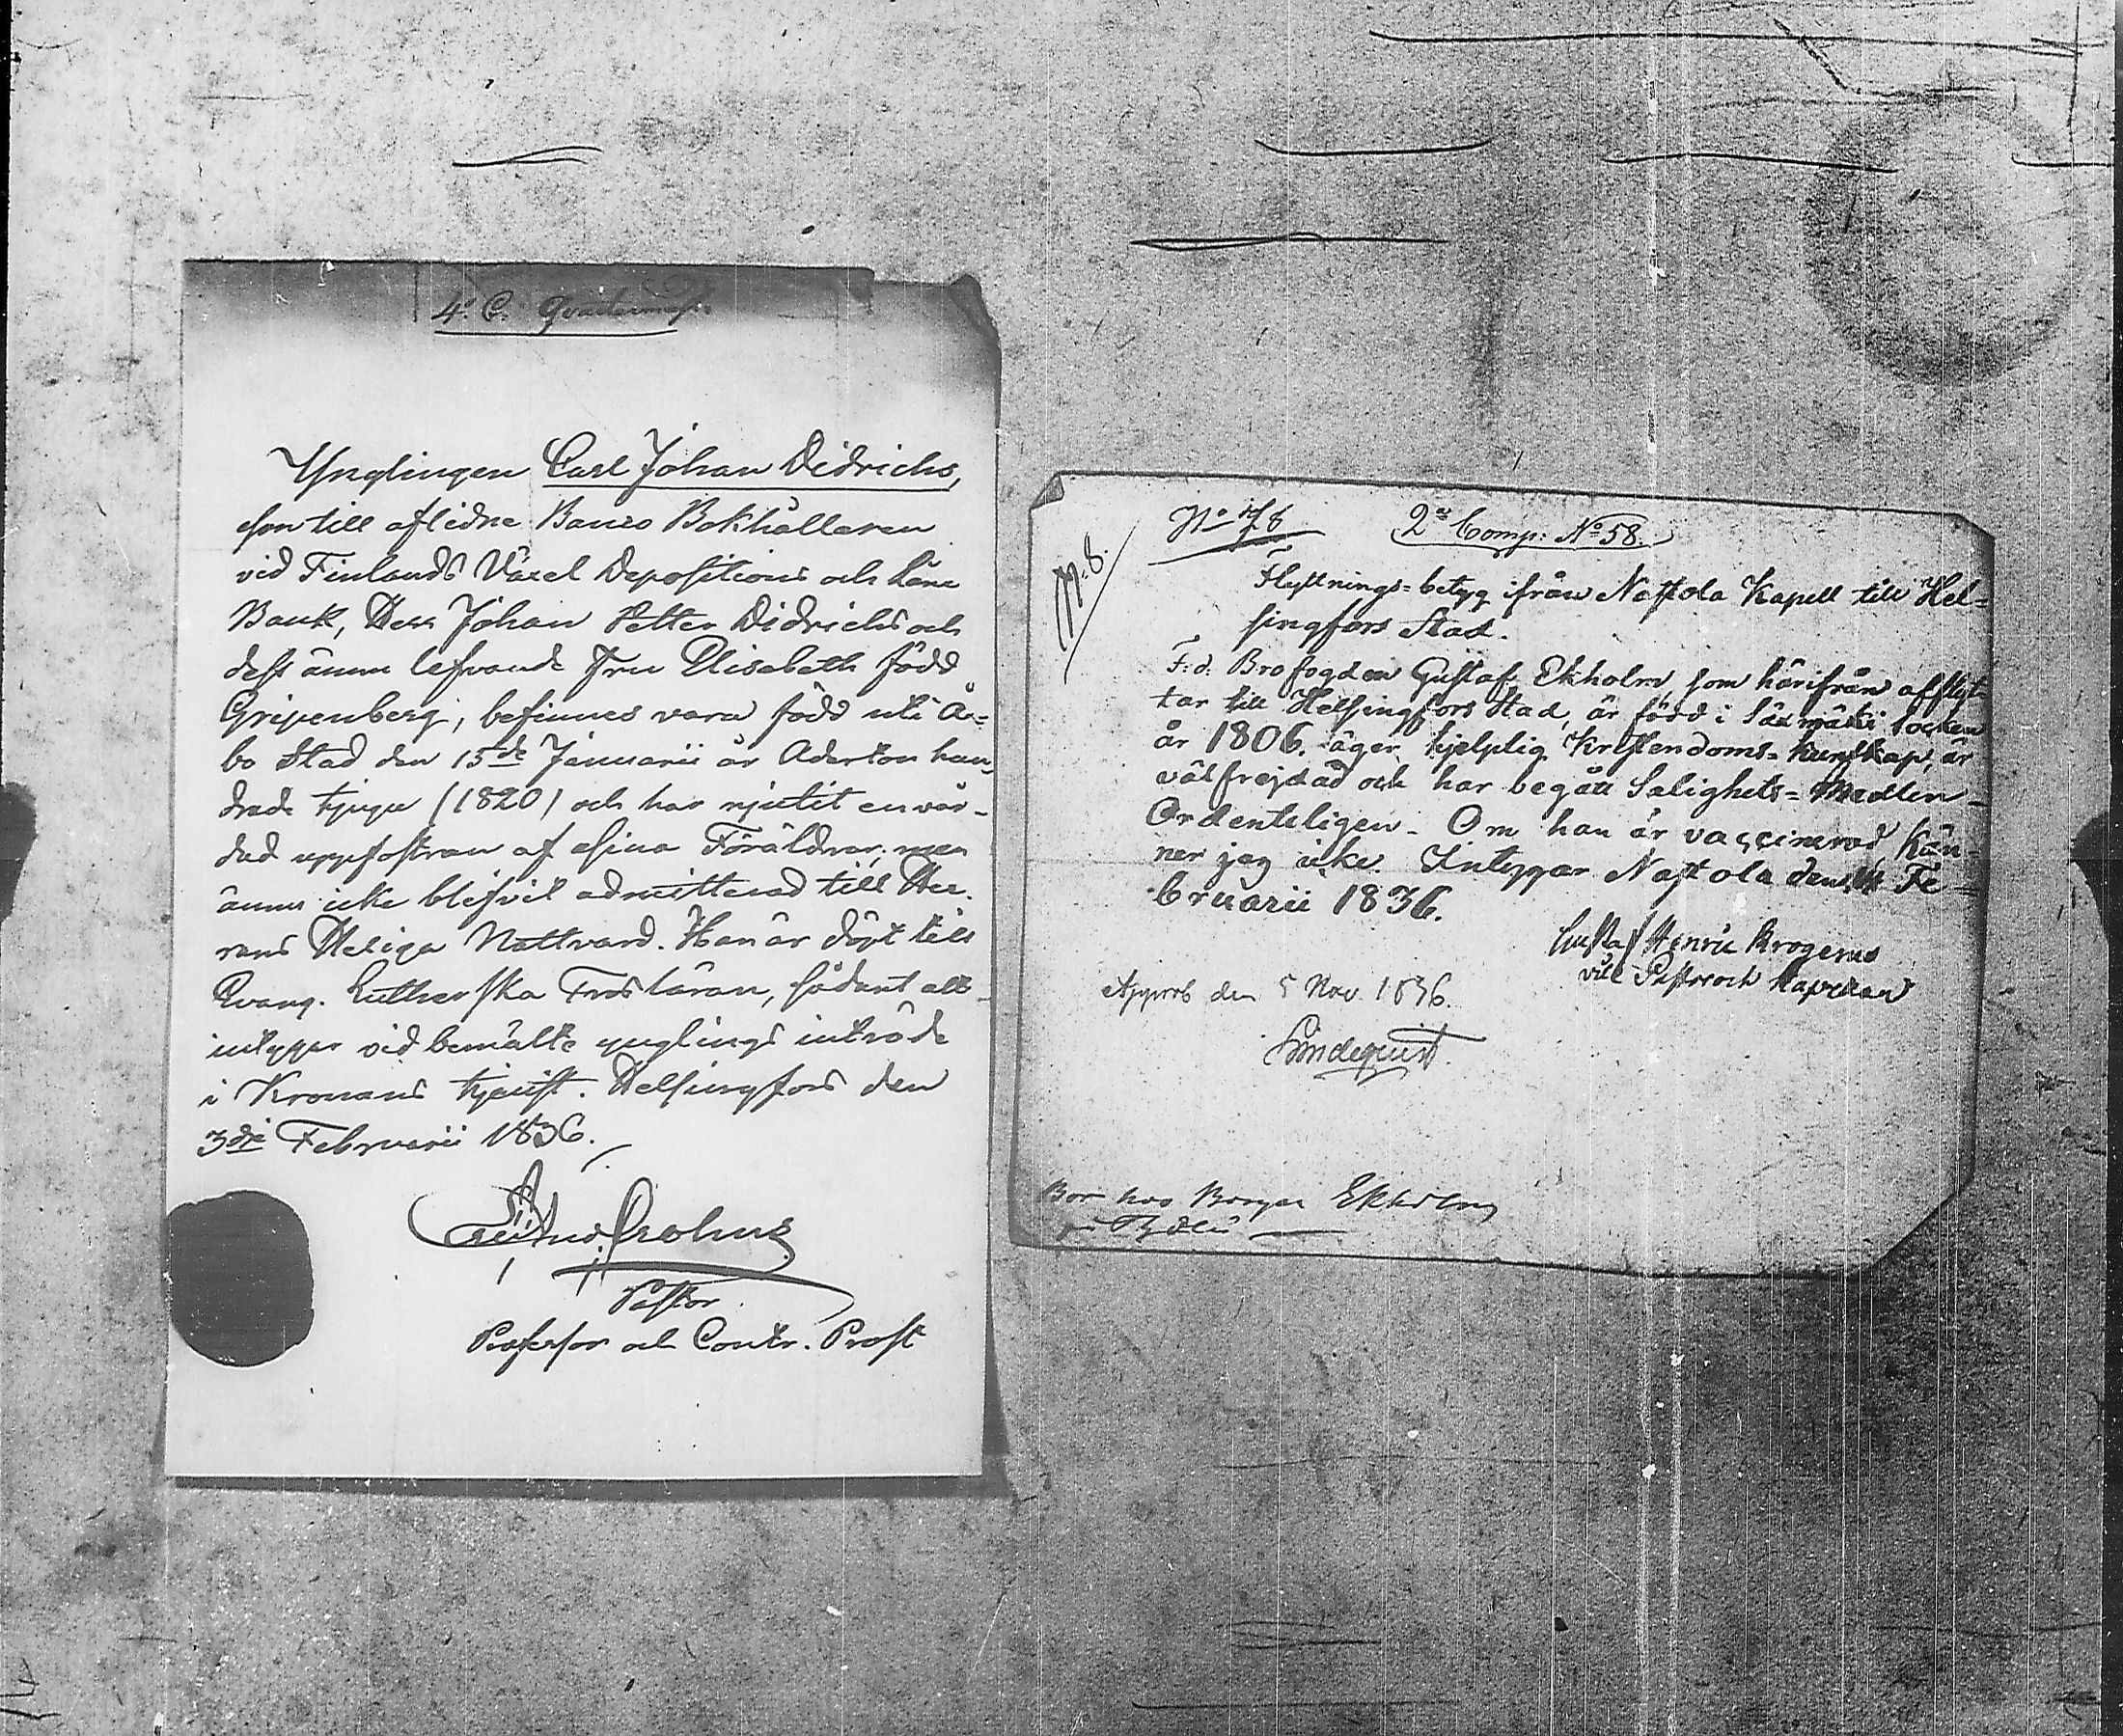 4: C. Qvarteret
Ynglingen Carl Johan Didrichs,
son till aflidne Banco Bokhållaren
vid Finlands Växel Depositions och Låne
Bank, Herr Johan Petter Didrichs och
dess ännu lefvande Fru Elisabeth född
Gripenberg, befinnes vara född uti Å=
bo Stad den 15de Januarii år Aderton hun-
drade tjugu (1820) och har njutit en vår-
dad uppfostran af sina Föräldrar, men
ännu icke blifvit admitterad till Her-
rans Heliga Nattvard. Han är döpt till
Evang. Lutherska Trosläran, sådant att-
intygar vid bemälte ynglings inträde
i Kronans tjenst. Helsingfors den
3die Februarii 1836.
Crohns
Pastor
Professor och Contr. Prost
No 78
2a Comp: No 58.
No 8.
Flyttnings=betyg ifrån Nastola Kapell till Hel=
singfors Stad.
F:d. Brofogden Gustaf Ekholm, som härifrån afflyt-
tar till Helsingfors Stad, är född i Säxmäki Socken
år 1806. äger hjelplig Kristendoms=kunskap, är
välfrejdad och har begått Salighets=Medlen
Ordenteligen. Om han är vaccinerad, kän-
ner jag icke. Intygar Nastola den 14 Fe=
bruarii 1836.
Gustaf Henric Krogerus
vice Pastor och Kapellan
Approb den 5 Nov 1836.
Lindequist.
Bor hos Borgar Ekholm